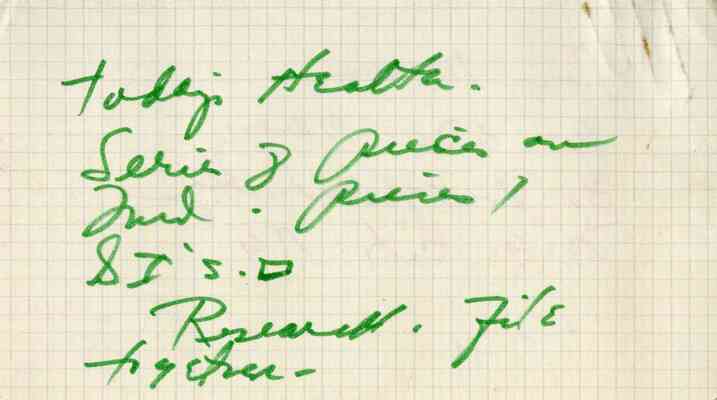 Today's Health.
Series of pieces on
Ind. pieces,
SI's.
Research. File
together-